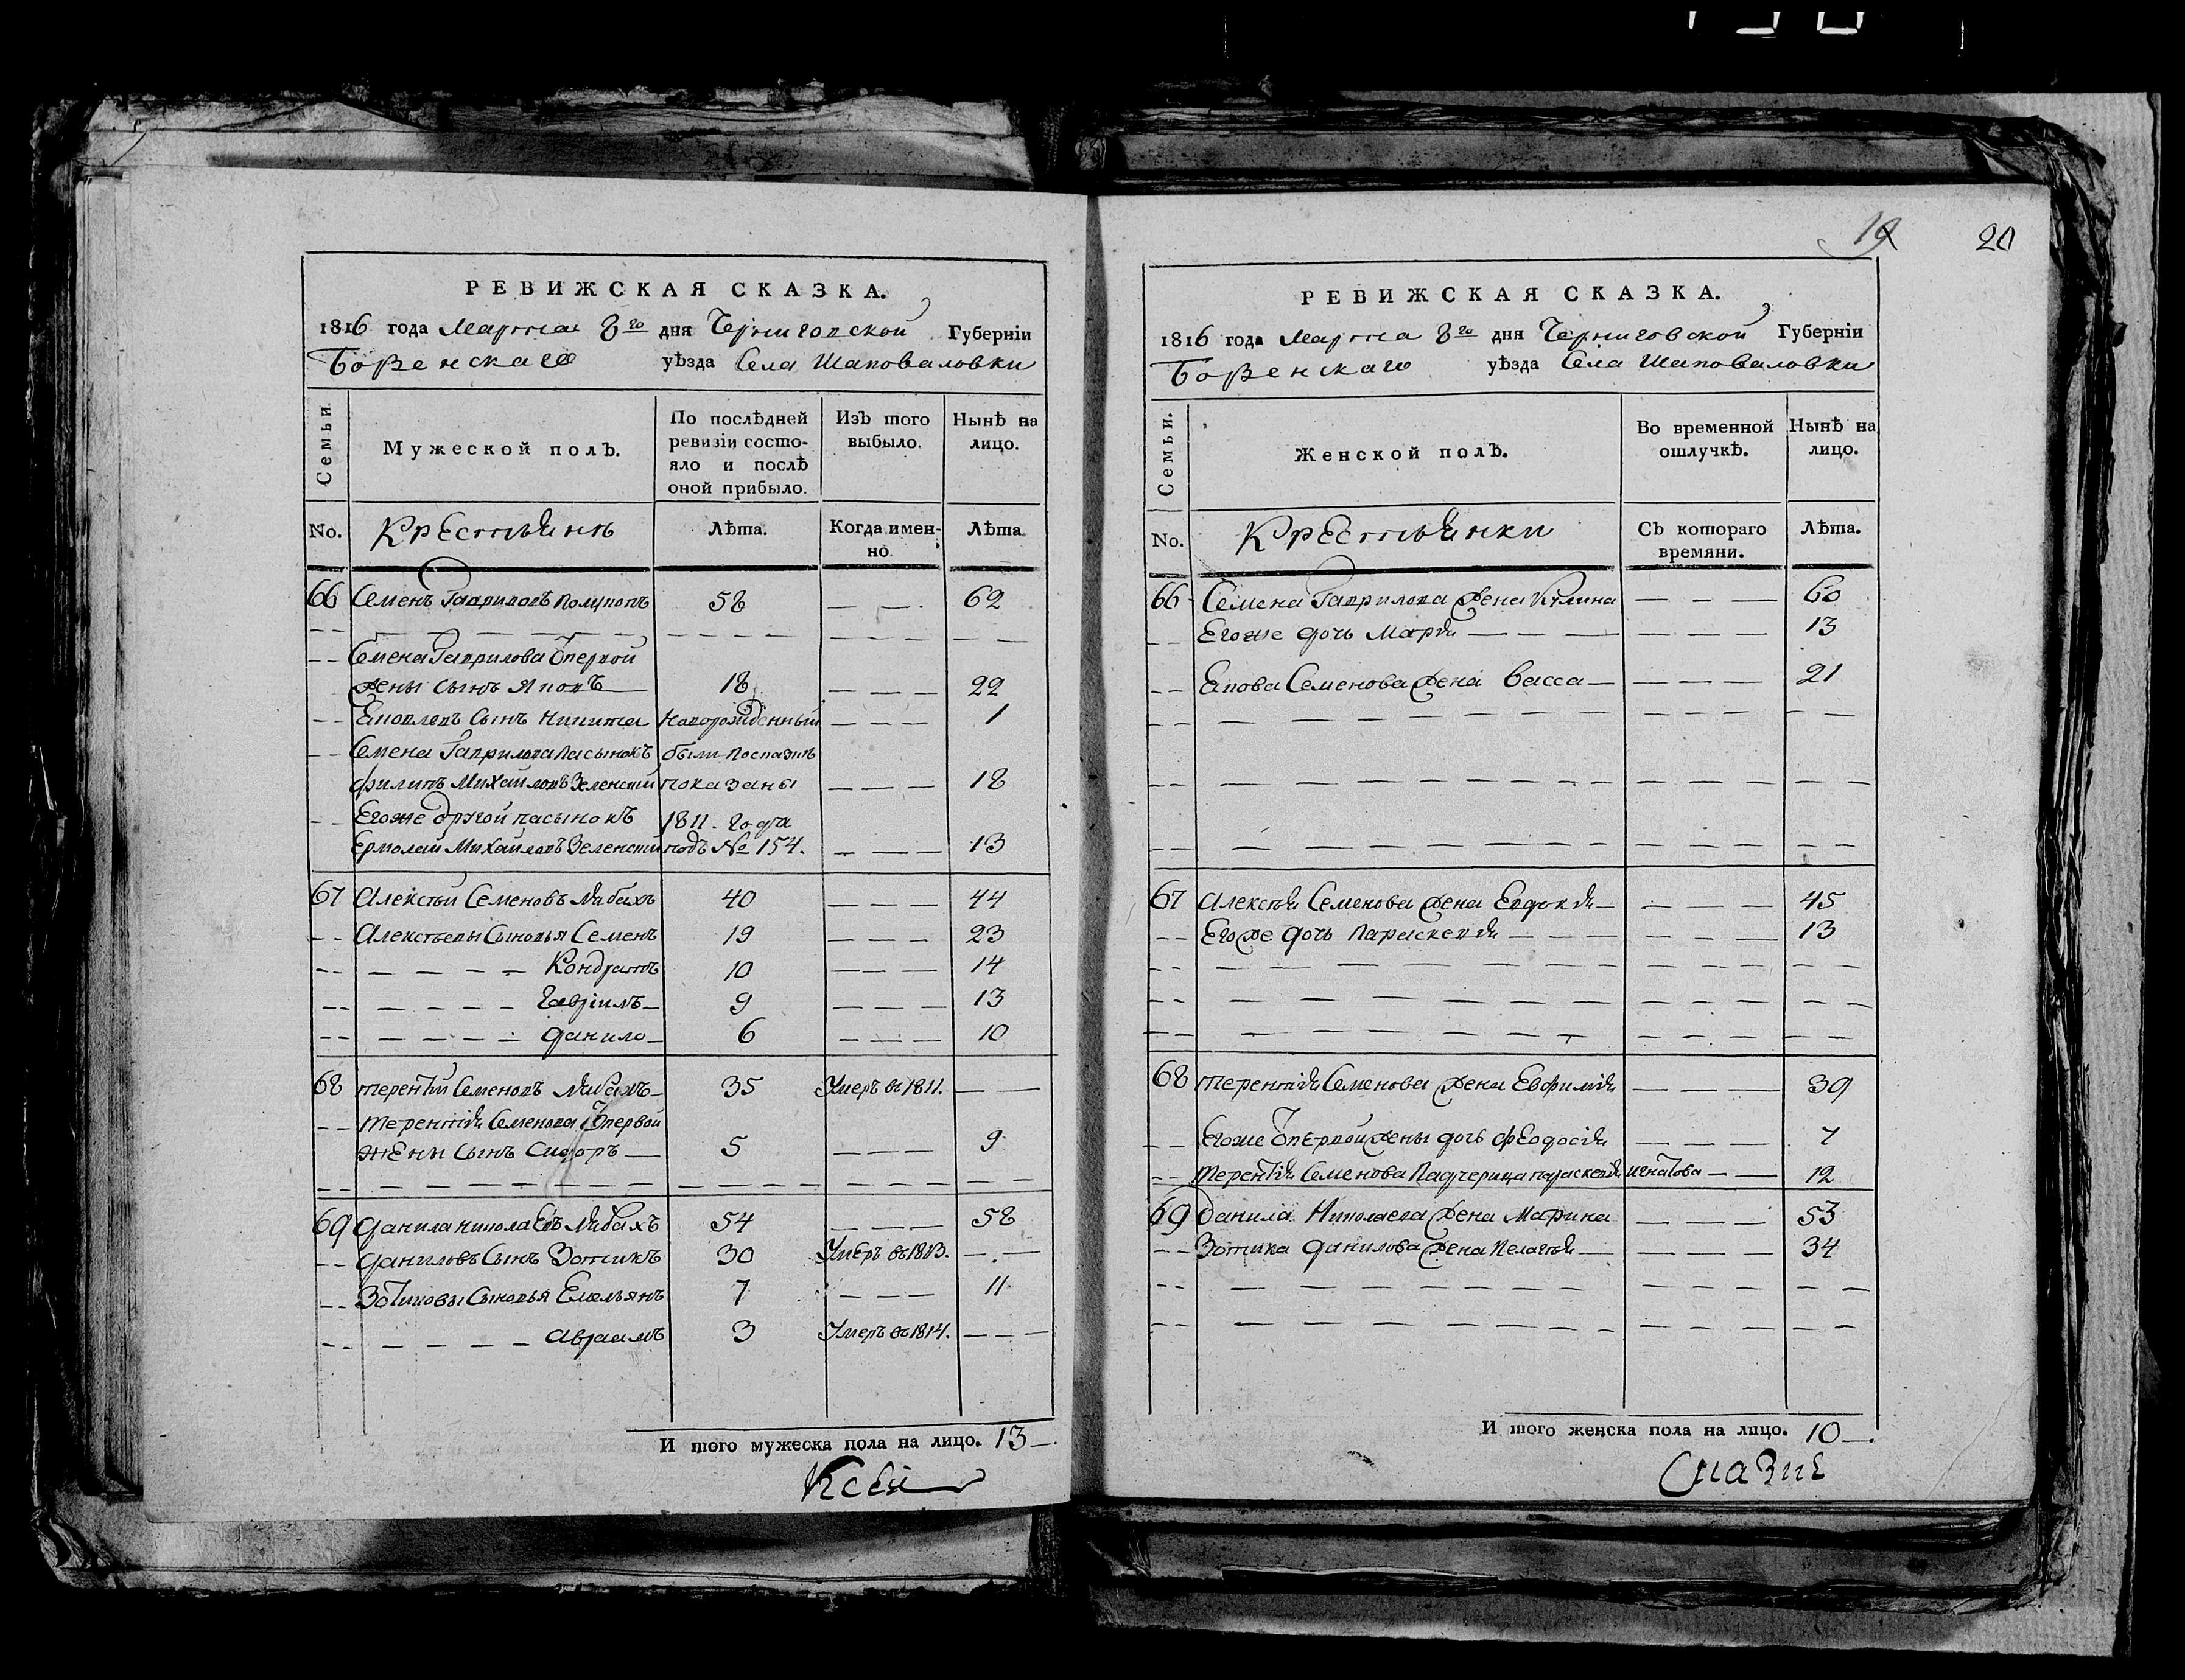 19 20
РЕВИЖСКАЯ СКАЗКА.
1816 года Марта 8го дня Черниговской Губерніи
Борзенскаго уѣзда Села Шаповаловки
Семьи.
Мужеской полъ.
По послѣдней ревизіи состояло и послѣ оной прибыло.
Изъ того выбыло.
Нынѣ на лицо.
No. Крестьянъ Лѣта. Когда именно. Лѣта.
66 Семенъ Гавриловъ Полупопъ 58 — — 62
Семена Гаврилова Ѿпервой
жены сынъ Яковъ — 18 — — — 22
Яковлевъ Сынъ Никита Новорожденный — — — 1
Семена Гаврилова пасынокъ были посказкѣ
Филипъ Михайловъ Зеленскій показаны — — — 18
Егоже другой пасынокъ 1811. года
Ермолай Михайловъ Зеленскій подъ № 154. — — — 13
67 Алексѣй Семеновъ Лабахъ 40 — — — 44
Алексѣевы Сыновья Семенъ 19 — — — 23
Кондратъ 10 — — — 14
Гавріилъ 9 — — — 13
Данило 6 — — — 10
68 Терентій Семеновъ Лабахъ 35 Умеръ въ 1811. — —
Терентія Семенова Ѿпервой
жены Сынъ Сидоръ — 5 — — — 9
69 Данила Николаевъ Лабахъ 54 — — — 58
Даниловъ Сынъ Зотикъ 30 Умеръ въ 1813. — —
Зотиковы Сыновья Емельянъ 7 — — — 11
Авраамъ 3 Умеръ въ 1814. — — —
И того мужеска пола на лицо. 13 —.
Ксей
РЕВИЖСКАЯ СКАЗКА.
1816 года Марта 8го дня Черниговской Губерніи
Борзенскаго уѣзда Села Шаповаловки
Семьи.
Женской полъ.
Во временной отлучкѣ.
Нынѣ на лицо.
No. Крестьянки Съ котораго времяни. Лѣта.
66 Семена Гаврилова жена Кулина — — — 60
Егоже дочь Марія — — — 13
Якова Семенова жена Васса — — — — 21
67 Алексѣя Семенова жена Евдокія — — — — 45
Егоже дочь Параскевія — — — 13
68 Терентія Семенова жена Евфимія — — — 39
Егоже Ѿпервой жены дочь Феодосія — — — 7
Терентія Семенова Падчерица параскевія игнатова — — 12
69 Данила Николаева жена Марина — — — 53
Зотика Данилова жена Пелагѣя — — — — 34
И того женска пола на лицо. 10 —.
Сказке